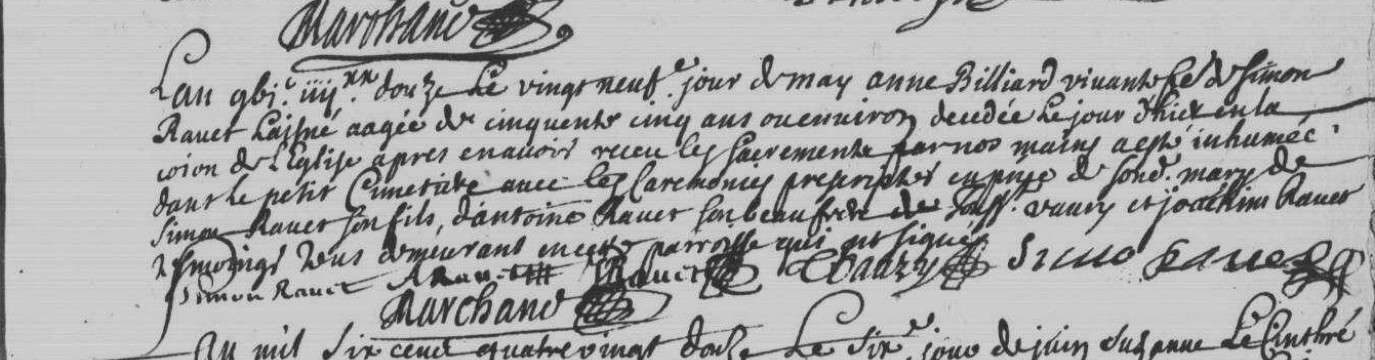 Marchand
L'an gbj.c iiij.xx douze Le vingt neuf.e jour de may anne Billiard vivante fe. de Simon
Rauet Laisné aagée de cinquente cinq ans ou environ decedée Le jour d'hier en la
coion de L'Eglise apres en avoir receu les sacrements par nos mains a esté inhumée
dans le petit Cimetiere avec les Caremonies prescriptes en pnce de sond. mary de
Simon Rauet son fils, d'antoine Rauet son beaufrere de Faury et joachim Rauet
tesmoings tous demeurant en cette parroisse qui ont signé
Simon Rauet ARauet JRauet Simo Raue
Marchand
L'an mil six cent quatre vingt douze Le six.e jour de juin Suzanne Le Cinthré